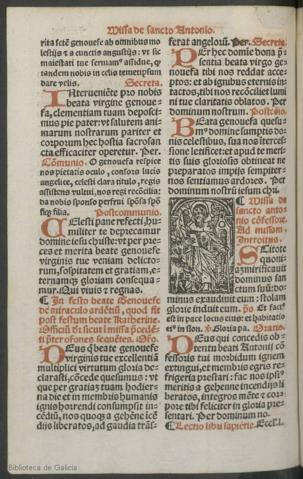 Missa de sancto Antonio.
rita sctē genouefe ab omnibus no
lestijs ⁊ a cunctis angustijs: vt sic
maiestati tue seruiam⁹ assidue, q̄
tandem nobis in celis temetipsum
dare velis. Secreta.
Interueniēte pro nobis
beata virgine genoue-
fa, clementiam tuam deposci-
mus pie pater: vt salutem ani-
marum nostrarum pariter et
corporum hec hostia sacrosan
cta efficaciter operetur. Per.
Cōmunio. O genouefa respice
nos pietatis oculo, consors lucis
angelice, celesti clara titulo, regis
assistens vultui, nos regi recōcilia:
da nobis sponso perfrui spōsa spō
si filia. Postcommunio.
Celesti pane refecti, hu-
militer te deprecamur
domine iesu christe: vt per pre-
ces et merita beate genouefe
virginis tue veniam delicto-
rum, sospitatem et gratiam, e-
ternamq̄ gloriam consequa-
mur. Qui viuis ⁊ regnas.
In festo beate Genouefe
de miraculo ardentiū, quod fit
post festum beate Katherine.
Officiū ⁊c̄ sicut ī missa p̄cedē-
ti p̄ter ōfones sequētes. Ōfo.
Deus q̄ beate genouefe
virginis tue excellentiā
multiplici virtutum gloria de-
clarasti, cōcede quesumus: vt
que per gratiaȝ tuam hodier-
na die et in membris humanis
ignis horrendi consumpsit in-
cēdiū, nos quoqȝ a gehēne icē
dijs liberatos, ad gaudia trās-
ferat angelorū. Per. Secreta.
Per hec domie dona p̄-
sentia beata virgo ge-
nouefa tibi nos reddat acce-
ptos: et ab ignibus eternis in-
tactos, tibi nos recōciliet lumi
ni tue claritatis oblatos. Per
dominum nostrum. Postcōio.
Beata genouefa quesu-
m⁹ domine sumptis do-
nis celestibus, sua nos iterces-
sione letificet: et apud te meri-
tis suis gloriosis obtineat ne
preparatos impijs sempiter-
nos sentiamus ardores. Per
dominum nostrū iesum chrī.
Missa de
sancto anto-
nio cōfessore.
Ad missam.
Introitus.
Scitote
quoniā
mirificauit
dominus san
ctum suū: do-
minus exaudiuit eum: stolam
glorie induit eum. ps. Et fact⁹
est in pace locus eius: et habitatio
ei⁹ in sion. v̄. Gloria pa. Oratio.
Deus qui concedis ob-
tentu beati Antonij cō
fessoris tui morbidum ignem
extingui, et membris egris re-
frigeria prestari: fac nos ipsi⁹
meritis a gehenne incendijs li
beratos, integros mēte ⁊ cor-
pore tibi feliciter in gloria pre-
sentari. Per dominum no.
Lectio libri sapiētie. Eccl'i.
Biblioteca de Galicia